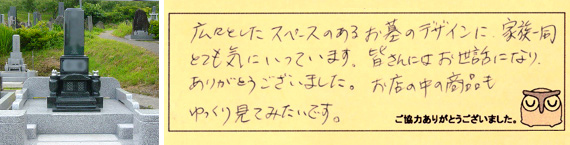 広々としたスペースのあるお墓のデザインに、家族一同
とても気にいっています。皆さんにはお世話になり、
ありがとうございました。お店の中の商品も
ゆっくり見てみたいです。
ご協力ありがとうございました。